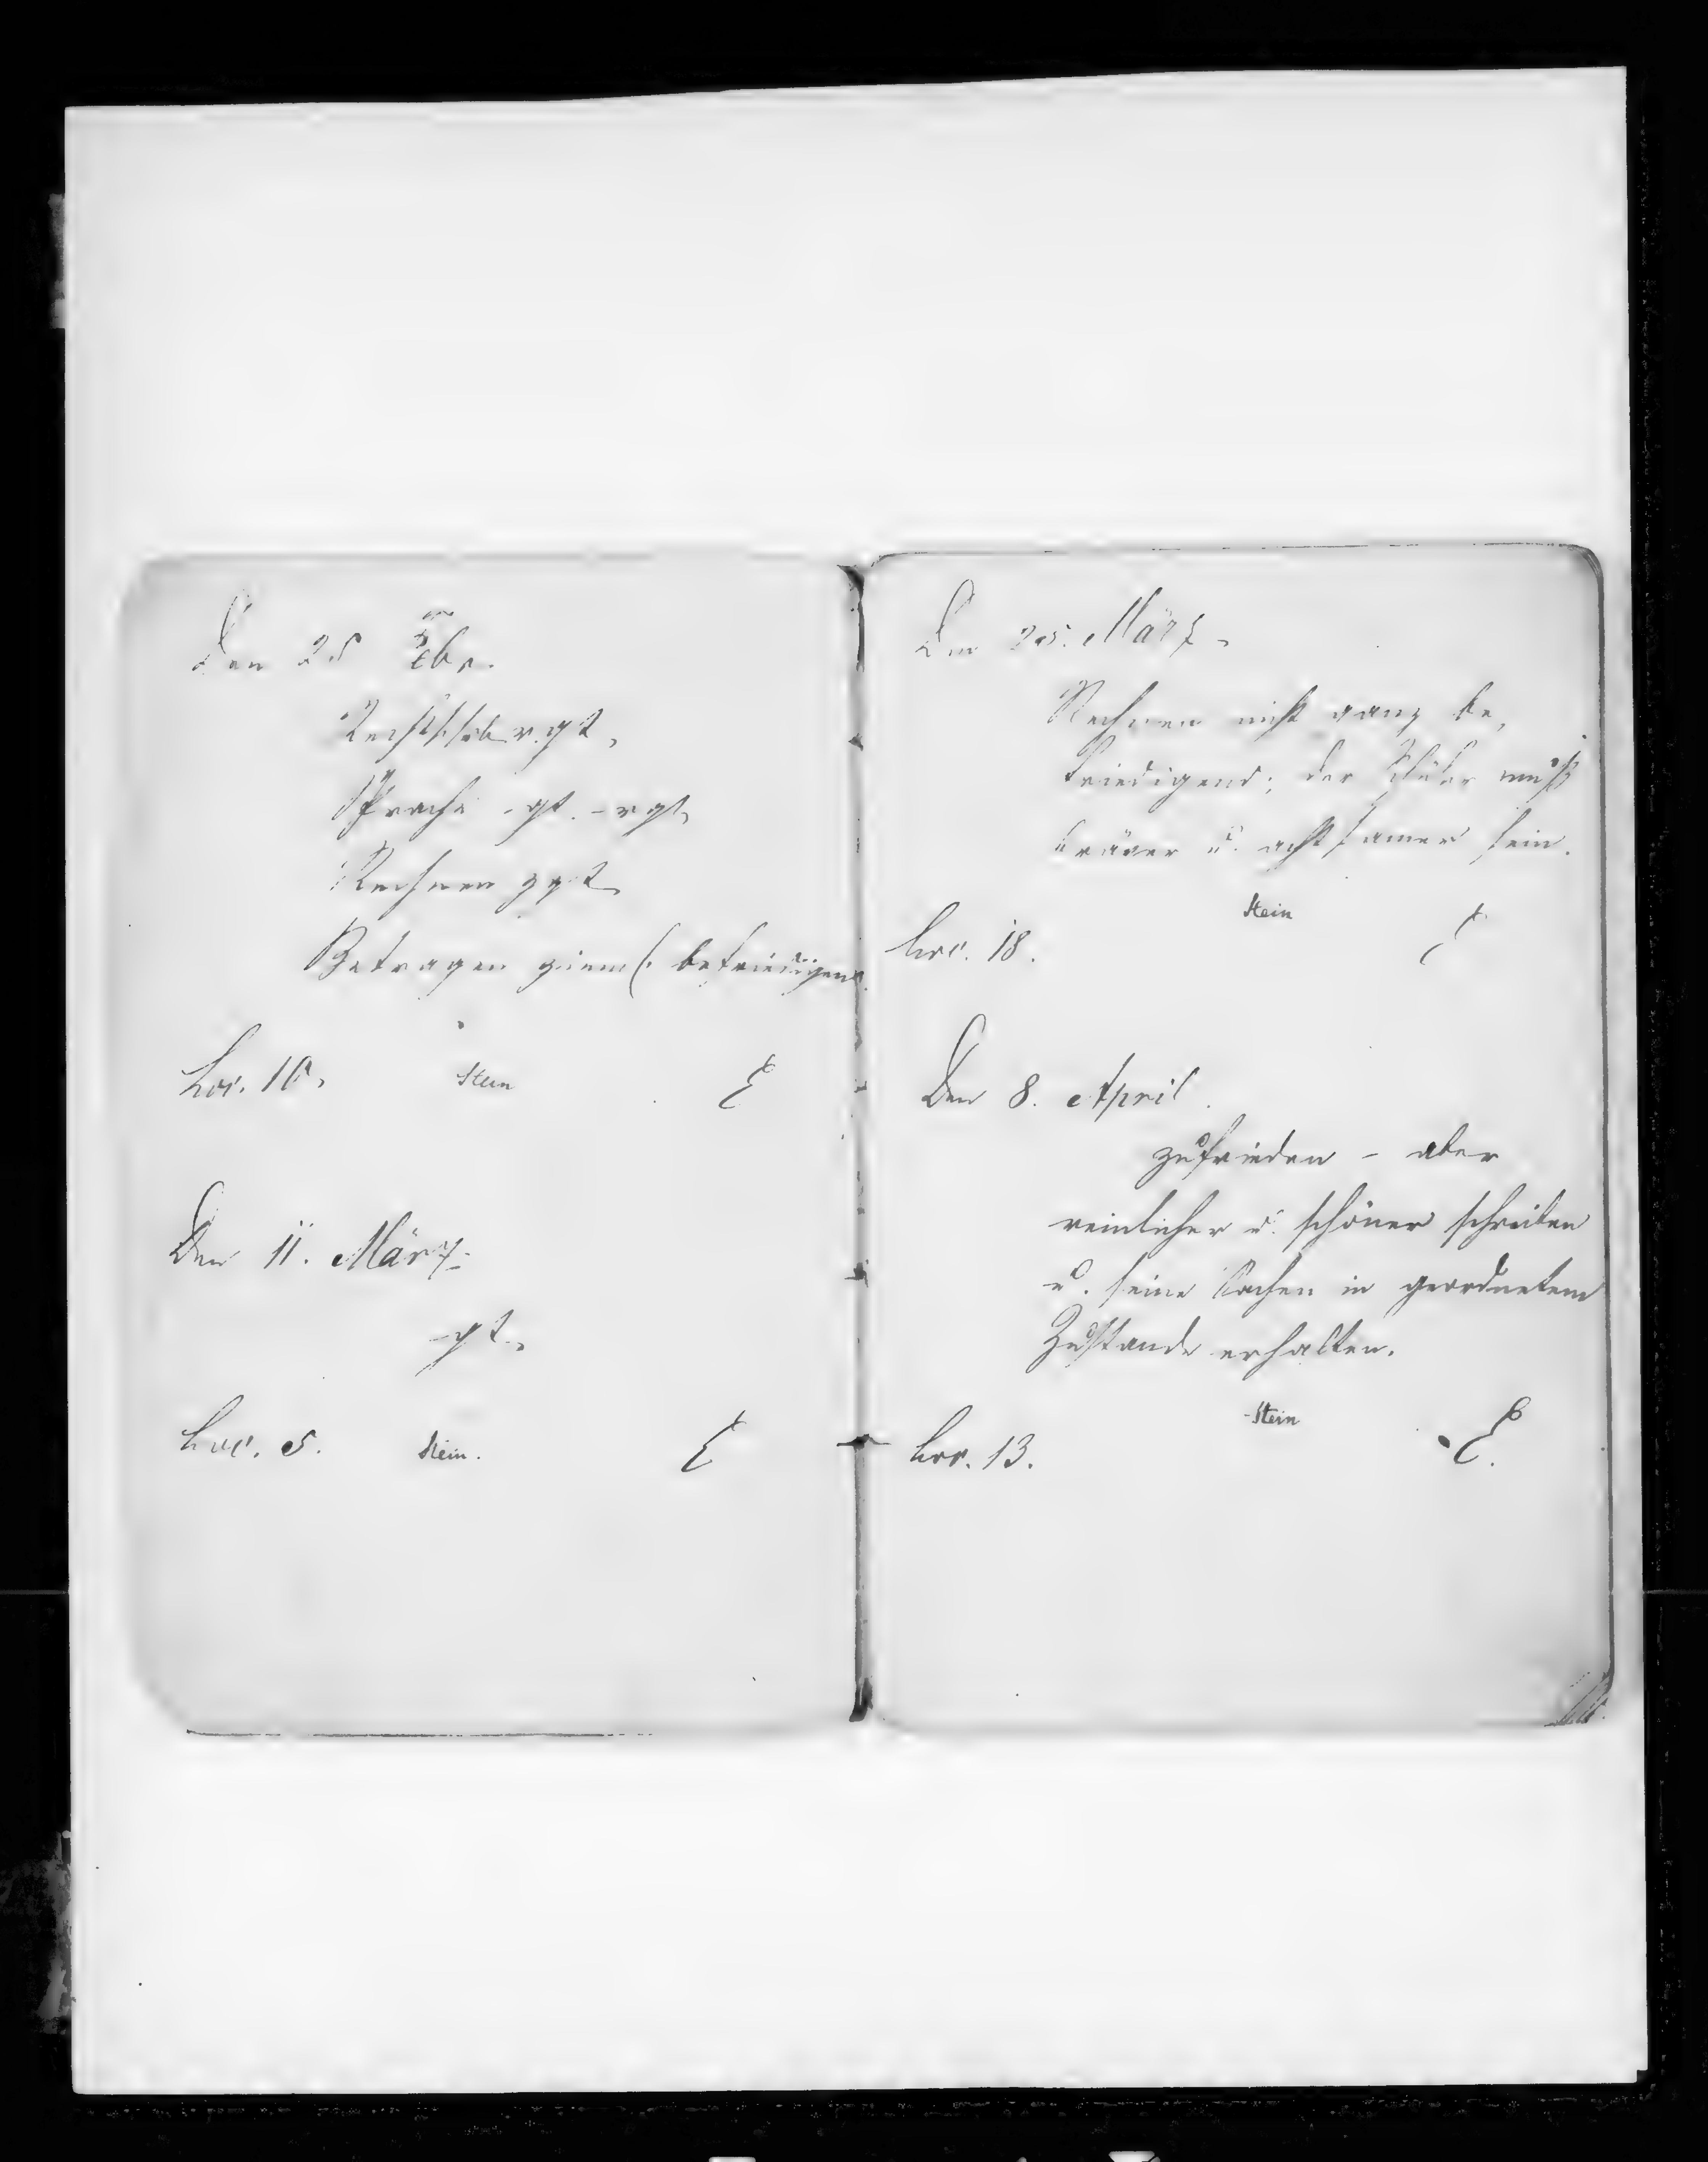 Den 25 Febr.
Rechtschb. r. gt.
Sprache - gt. - rgt.
Rechnen zgt.
Betragen zieml. befriedigend.
Loc. 10. Stein E
Den 11. März.
gt.
Loc. 5. Stein. E
Den 25. März.
Rechnen nicht ganz be,
friedigend; der Schüler muß
bräver u. achtsamer sein.
Stein E
Loc. 18.
Den 8. April.
zufrieden - aber
reinlicher u. schöner schreiben
u. seine Sachen in geordnetem
Zustande erhalten.
Stein E.
Loc. 13.